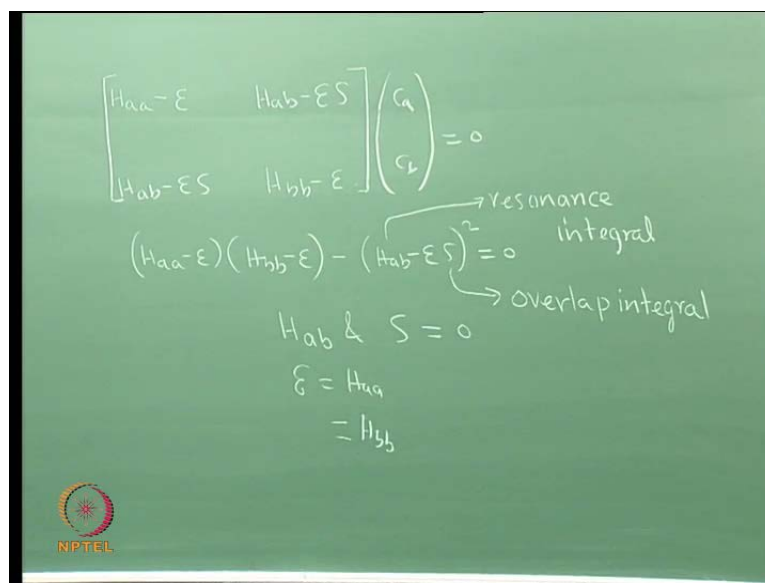 Haa-ε Hab-εS Ca
= 0
Hab-εS Hbb-ε Cb
(Haa-ε)(Hbb-ε) - (Hab-εS)² = 0
resonance
integral
overlap integral
Hab & S = 0
ε = Haa
= Hbb
NPTEL